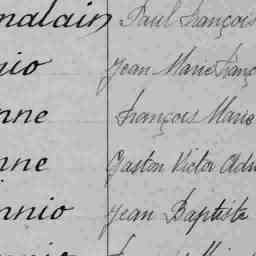 nalain Paul François
nio Jean Marie Franç
nne François Marie
nne Gaston Victor Adri
nnio Jean Baptiste